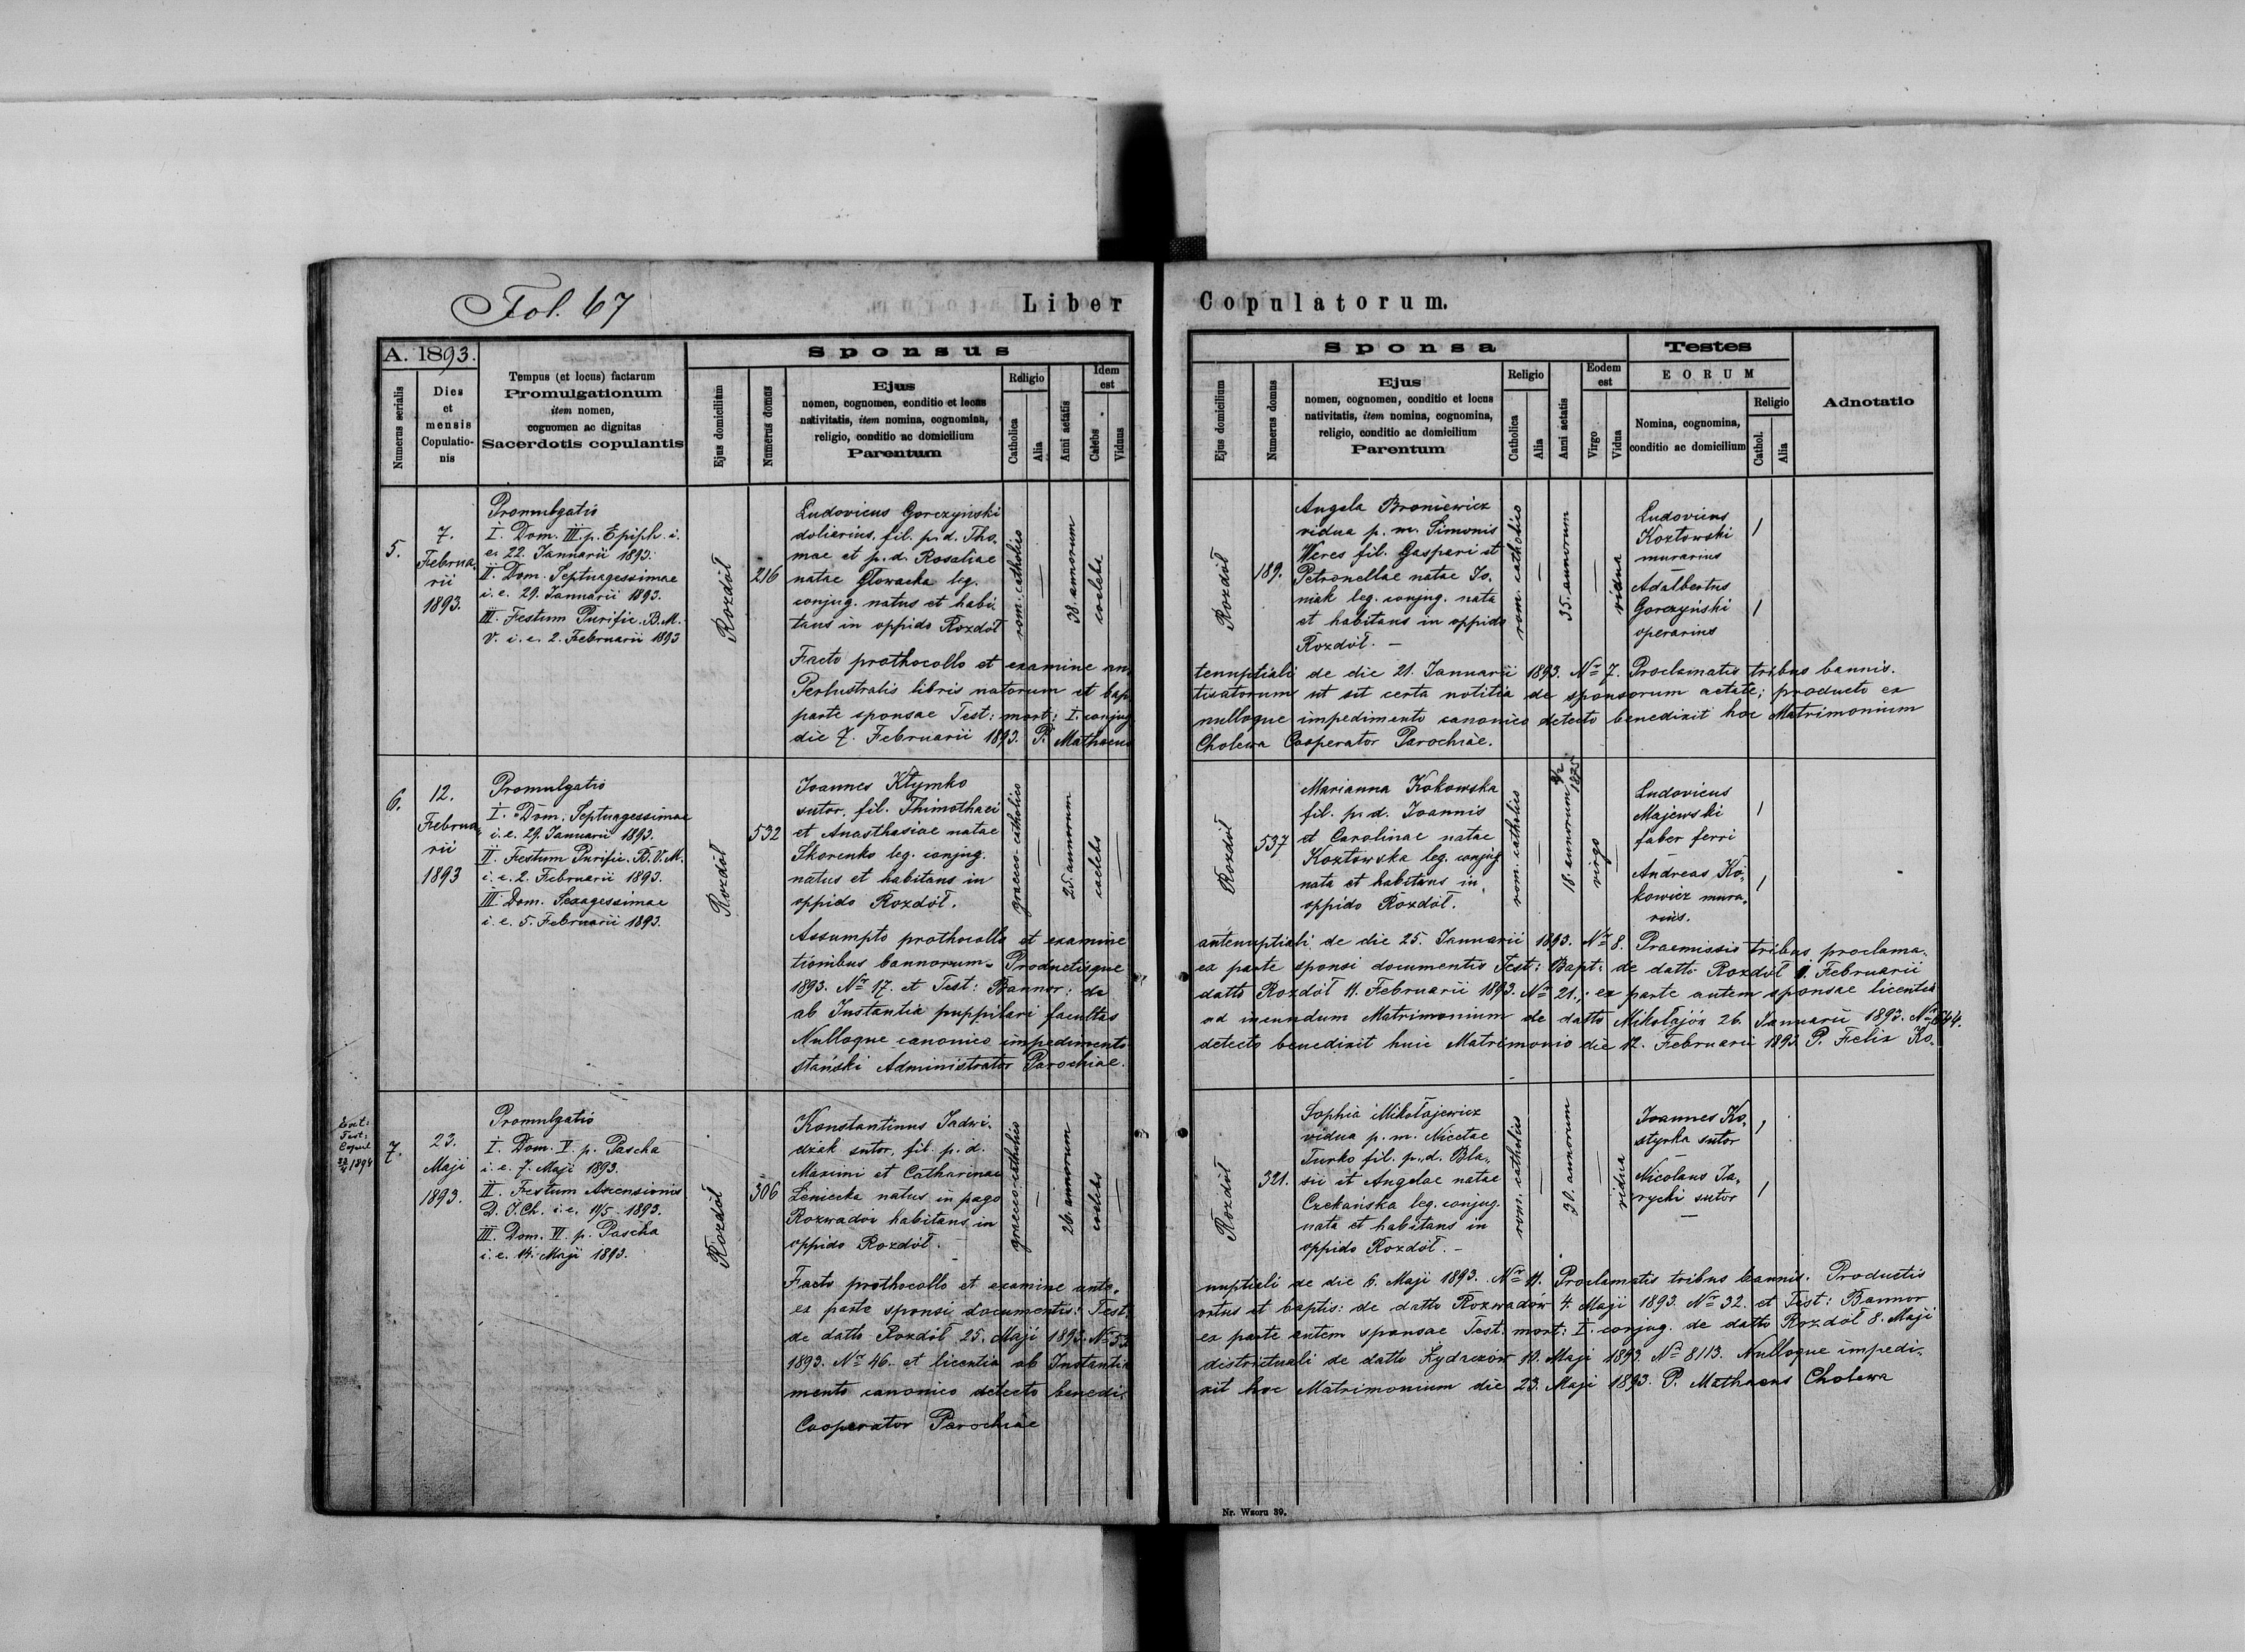 Fol. 67
Liber Copulatorum.
A. 1893.
Numerus serialis
Dies
et
mensis
Copulatio-
nis
Tempus (et locus) factarum
Promulgationum
item nomen,
cognomen ac dignitas
Sacerdotis copulantis
Sponsus
Ejus domicilium
Numerus domus
Ejus
nomen, cognomen, conditio et locus
nativitatis, item nomina, cognomina,
religio, conditio ac domicilium
Parentum
Religio
Catholica
Alia
Anni aetatis
Idem
est
Calebs
Viduus
Sponsa
Ejus domicilium
Numerus domus
Ejus
nomen, cognomen, conditio et locus
nativitatis, item nomina, cognomina,
religio, conditio ac domicilium
Parentum
Religio
Catholica
Alia
Anni aetatis
Eodem
est
Virgo
Vidua
Testes
EORUM
Nomina, cognomina,
conditio ac domicilium
Religio
Cathol.
Alia
Adnotatio
5.
7.
Februa-
rii
1893.
Promulgatio
I. Dom. III. p. Epiph. i.
e. 22. Januarii 1893.
II. Dom. Septuagessimae
i. e. 29. Januarii 1893.
III. Festum Purific. B. M.
V. i. e. 2. Februarii 1893
Rozdół
216
Ludovicus Gorczyński
doliarius, fil. p. d. Tho-
mae et p. d. Rosaliae
natae Głowacka leg.
conjug. natus et habi-
tans in oppido Rozdół
rom. catholico
38. annorum
coelebs
Rozdół
189.
Angela Broniewicz
vidua p. m. Simonis
Weres fil. Gaspari et
Petronellae natae Jo-
niak leg. conjug. nata
et habitans in oppido
Rozdół. –
rom. catholico
35. annorum
vidua
Ludovicus
Kozłowski
murarius
Adalbertus
Gorczyński
operarius
Facto prothocollo et examine an-
tenuptiali de die 21. Januarii 1893. Nr 7. Proclamatis tribus bannis.
Perlustratis libris natorum et bap-
tisatorum ut sit certa notitia de sponsorum aetate; producto ex
parte sponsae Test: mort: I. conjug
nulloque impedimento canonico detecto benedixit hoc Matrimonium
die 7. Februarii 1893. P. Mathaeus
Cholewa Cooperator Parochiae.
6.
12.
Februa-
rii
1893
Promulgatio
I. Dom. Septuagessimae
i. e. 29. Januarii 1893.
II. Festum Purific. B. V. M.
i. e. 2. Februarii 1893.
III Dom. Sexagessimae
i. e. 5. Februarii 1893.
Rozdół
532
Joannes Kłymko
sutor, fil. Thimothaei
et Anasthasiae natae
Skorenko leg. conjug.
natus et habitans in
oppido Rozdół.
graeco-catholico
25. annorum
caelebs
Rozdół
537
Marianna Kokowska
fil. p. d. Joannis
et Carolinae natae
Kozłowska leg. conjug
nata et habitans in
oppido Rozdół.
rom. catholico
18. annorum
1875
virgo
Ludovicus
Majewski
faber ferri
Andreas Ko-
kowicz mura-
rius.
Assumpto prothocollo et examine
antenuptiali de die 25. Januarii 1893. Nr 8. Praemissis tribus proclama-
tionibus bannorum. Productisque
ex parte sponsi documentis Test: Bapt: de datto Rozdół 1. Februarii
1893. Nr 17. et Test: Bannor: de
datto Rozdół 11. Februarii 1893. Nr 21.; ex parte autem sponsae licentia
ab Instantia puppilari facultas
ad ineundum Matrimonium de datto Mikołajów 26. Januarii 1893. Nr 644.
Nulloque canonico impedimento
detecto benedixit huic Matrimonio die 12. Februarii 1893 P. Felix Ko-
stański Administrator Parochiae.
7.
23.
Maji
1893.
Promulgatio
I. Dom. V. p. Pascha
i. e. 7. Maji 1893.
II. Festum Ascensionis
D. J. Ch. i. e. 11/5 1893.
III. Dom. VI. p. Pascha
i. e. 14. Maji 1893.
Rozdół
306
Konstantinus Jadwi-
dziak sutor, fil. p. d.
Maximi et Catharinae
Leniecka natus in pago
Rozwadów habitans in
oppido Rozdół.
graeco-catholico
26. annorum
coelebs
Rozdół
321.
Sophia Mikołajewicz
vidua p. m. Nicetae
Turko fil. p. d. Bla-
sii et Angelae natae
Czekańska leg. conjug.
nata et habitans in
oppido Rozdół. –
rom. catholico
30. annorum
vidua
Joannes Ko-
styrka sutor
Nicolaus Ja-
rycki sutor
Facto prothocollo et examine ante-
nuptiali de die 6. Maji 1893. Nr 11. Proclamatis tribus bannis. Productis
ex parte sponsi documentis: Test:
ortus et baptis: de datto Rozwadów 4. Maji 1893. Nr 32. et Test: Bannor
de datto Rozdół 25. Maji 1893. Nr 53
ex parte autem sponsae Test: mort: I. conjug. de datto Rozdół 8. Maji
1893. Nr 46. et licentia ab Instantia
districtuali de datto Żydaczów 19. Maji 1893. Nr 8113. Nulloque impedi-
mento canonico detecto benedi-
xit hoc Matrimonium die 23. Maji 1893. P. Mathaeus Cholewa
Cooperator Parochiae
Nr. Wzoru 39.